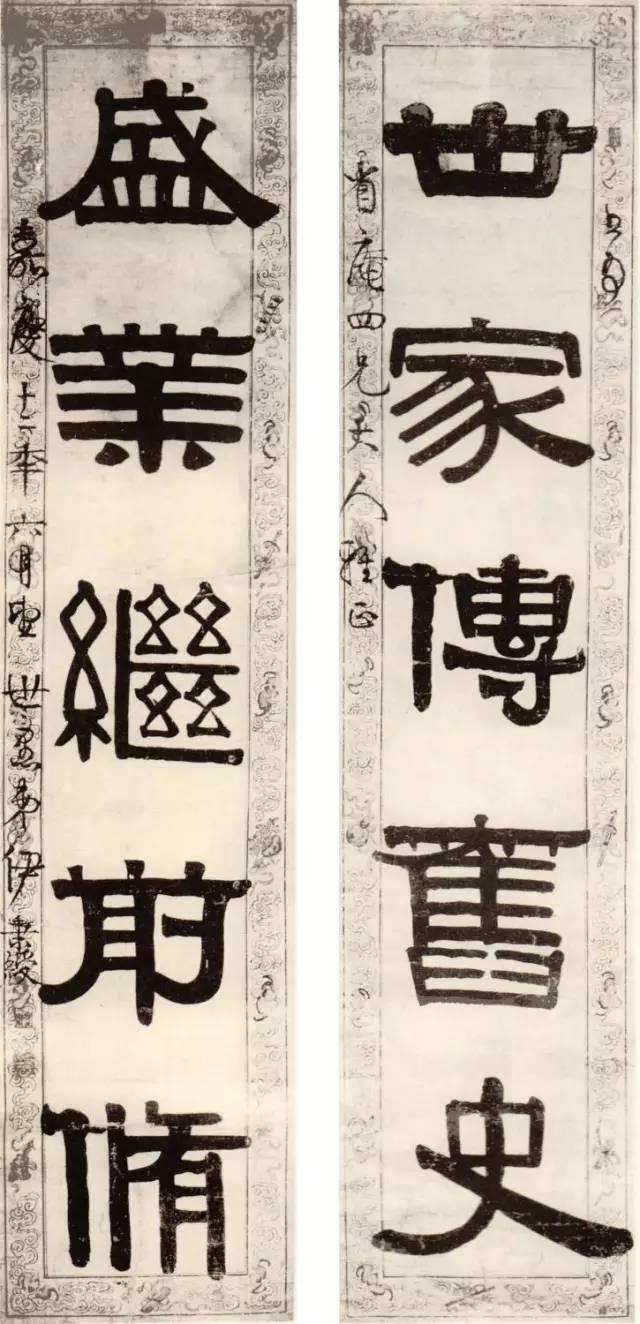 世家傳舊史
庵四兄大人雅正
盛業繼前脩
嘉慶十一年六月望 世愚弟伊秉綬